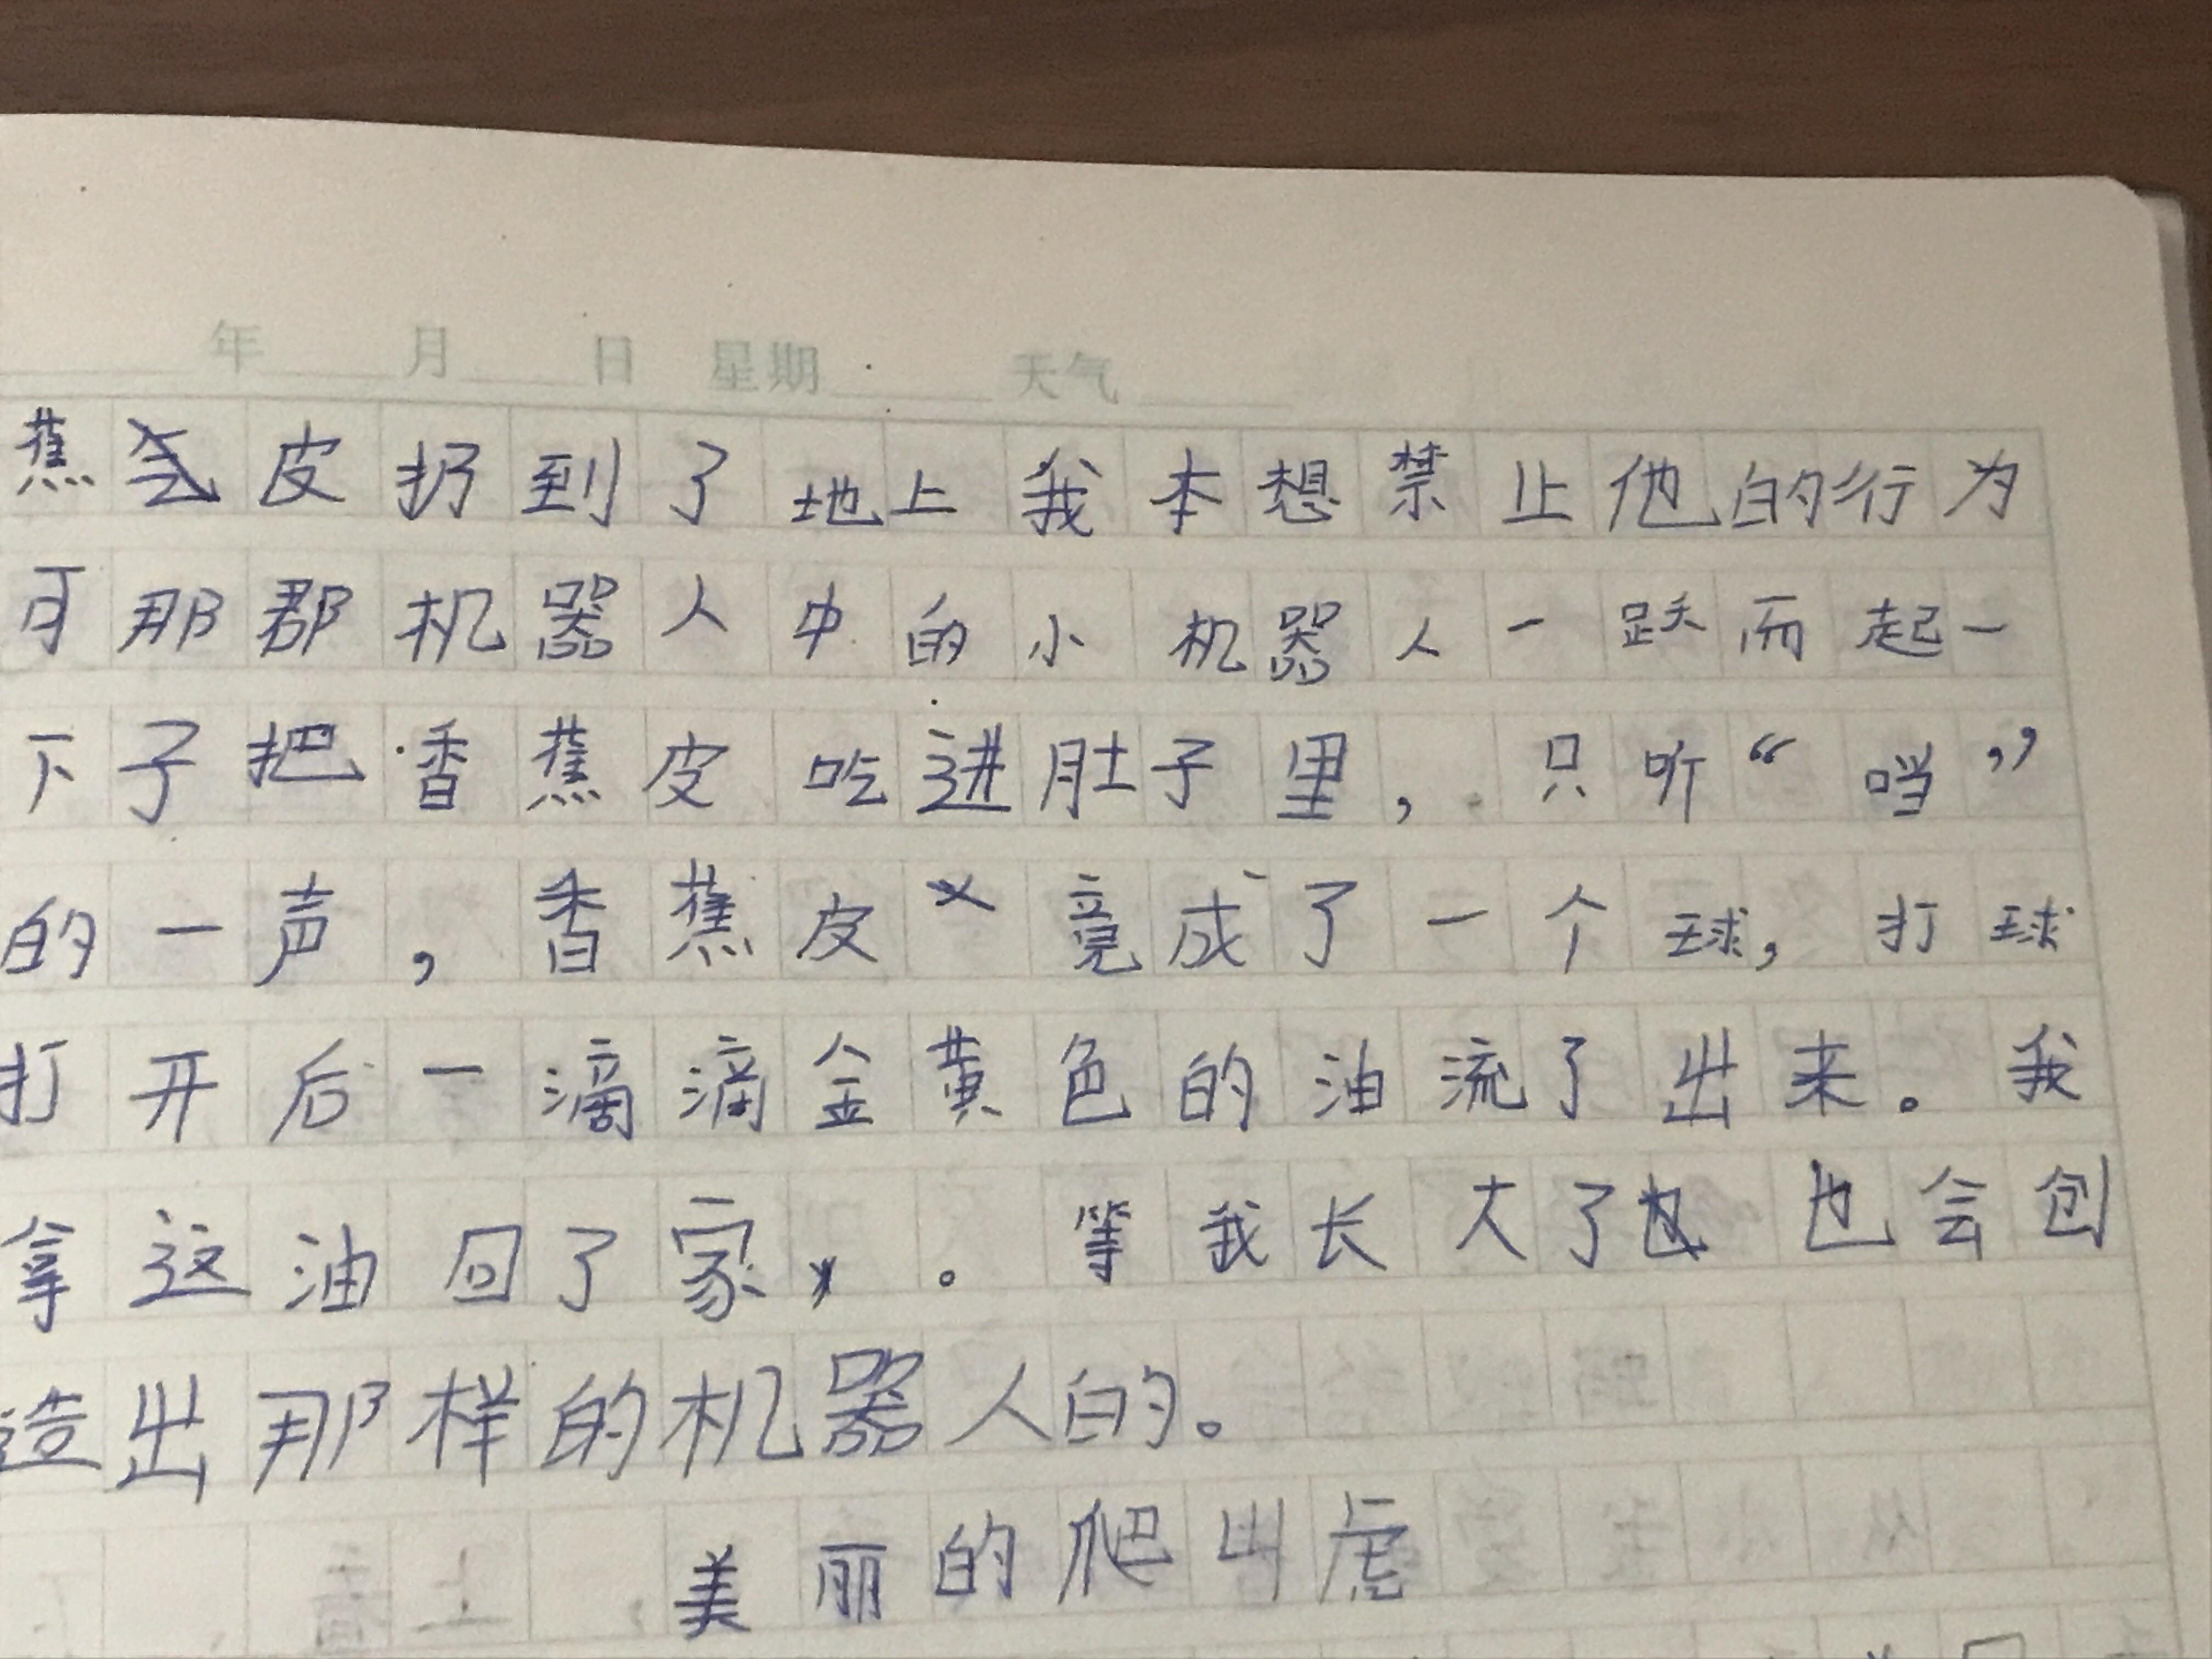 年 月 日 星期 天气
蕉皮扔到了地上我本想禁止他的行为
可那郡机器人中的小机器人一跃而起一
下子把香蕉皮吃进肚子里，只听“当”
的一声，香蕉皮竟成了一个球，打球
打开后一滴滴金黄色的油流了出来。我
拿这油回了家。等我长大了也会创
造出那样的机器人的。
美丽的爬山虎